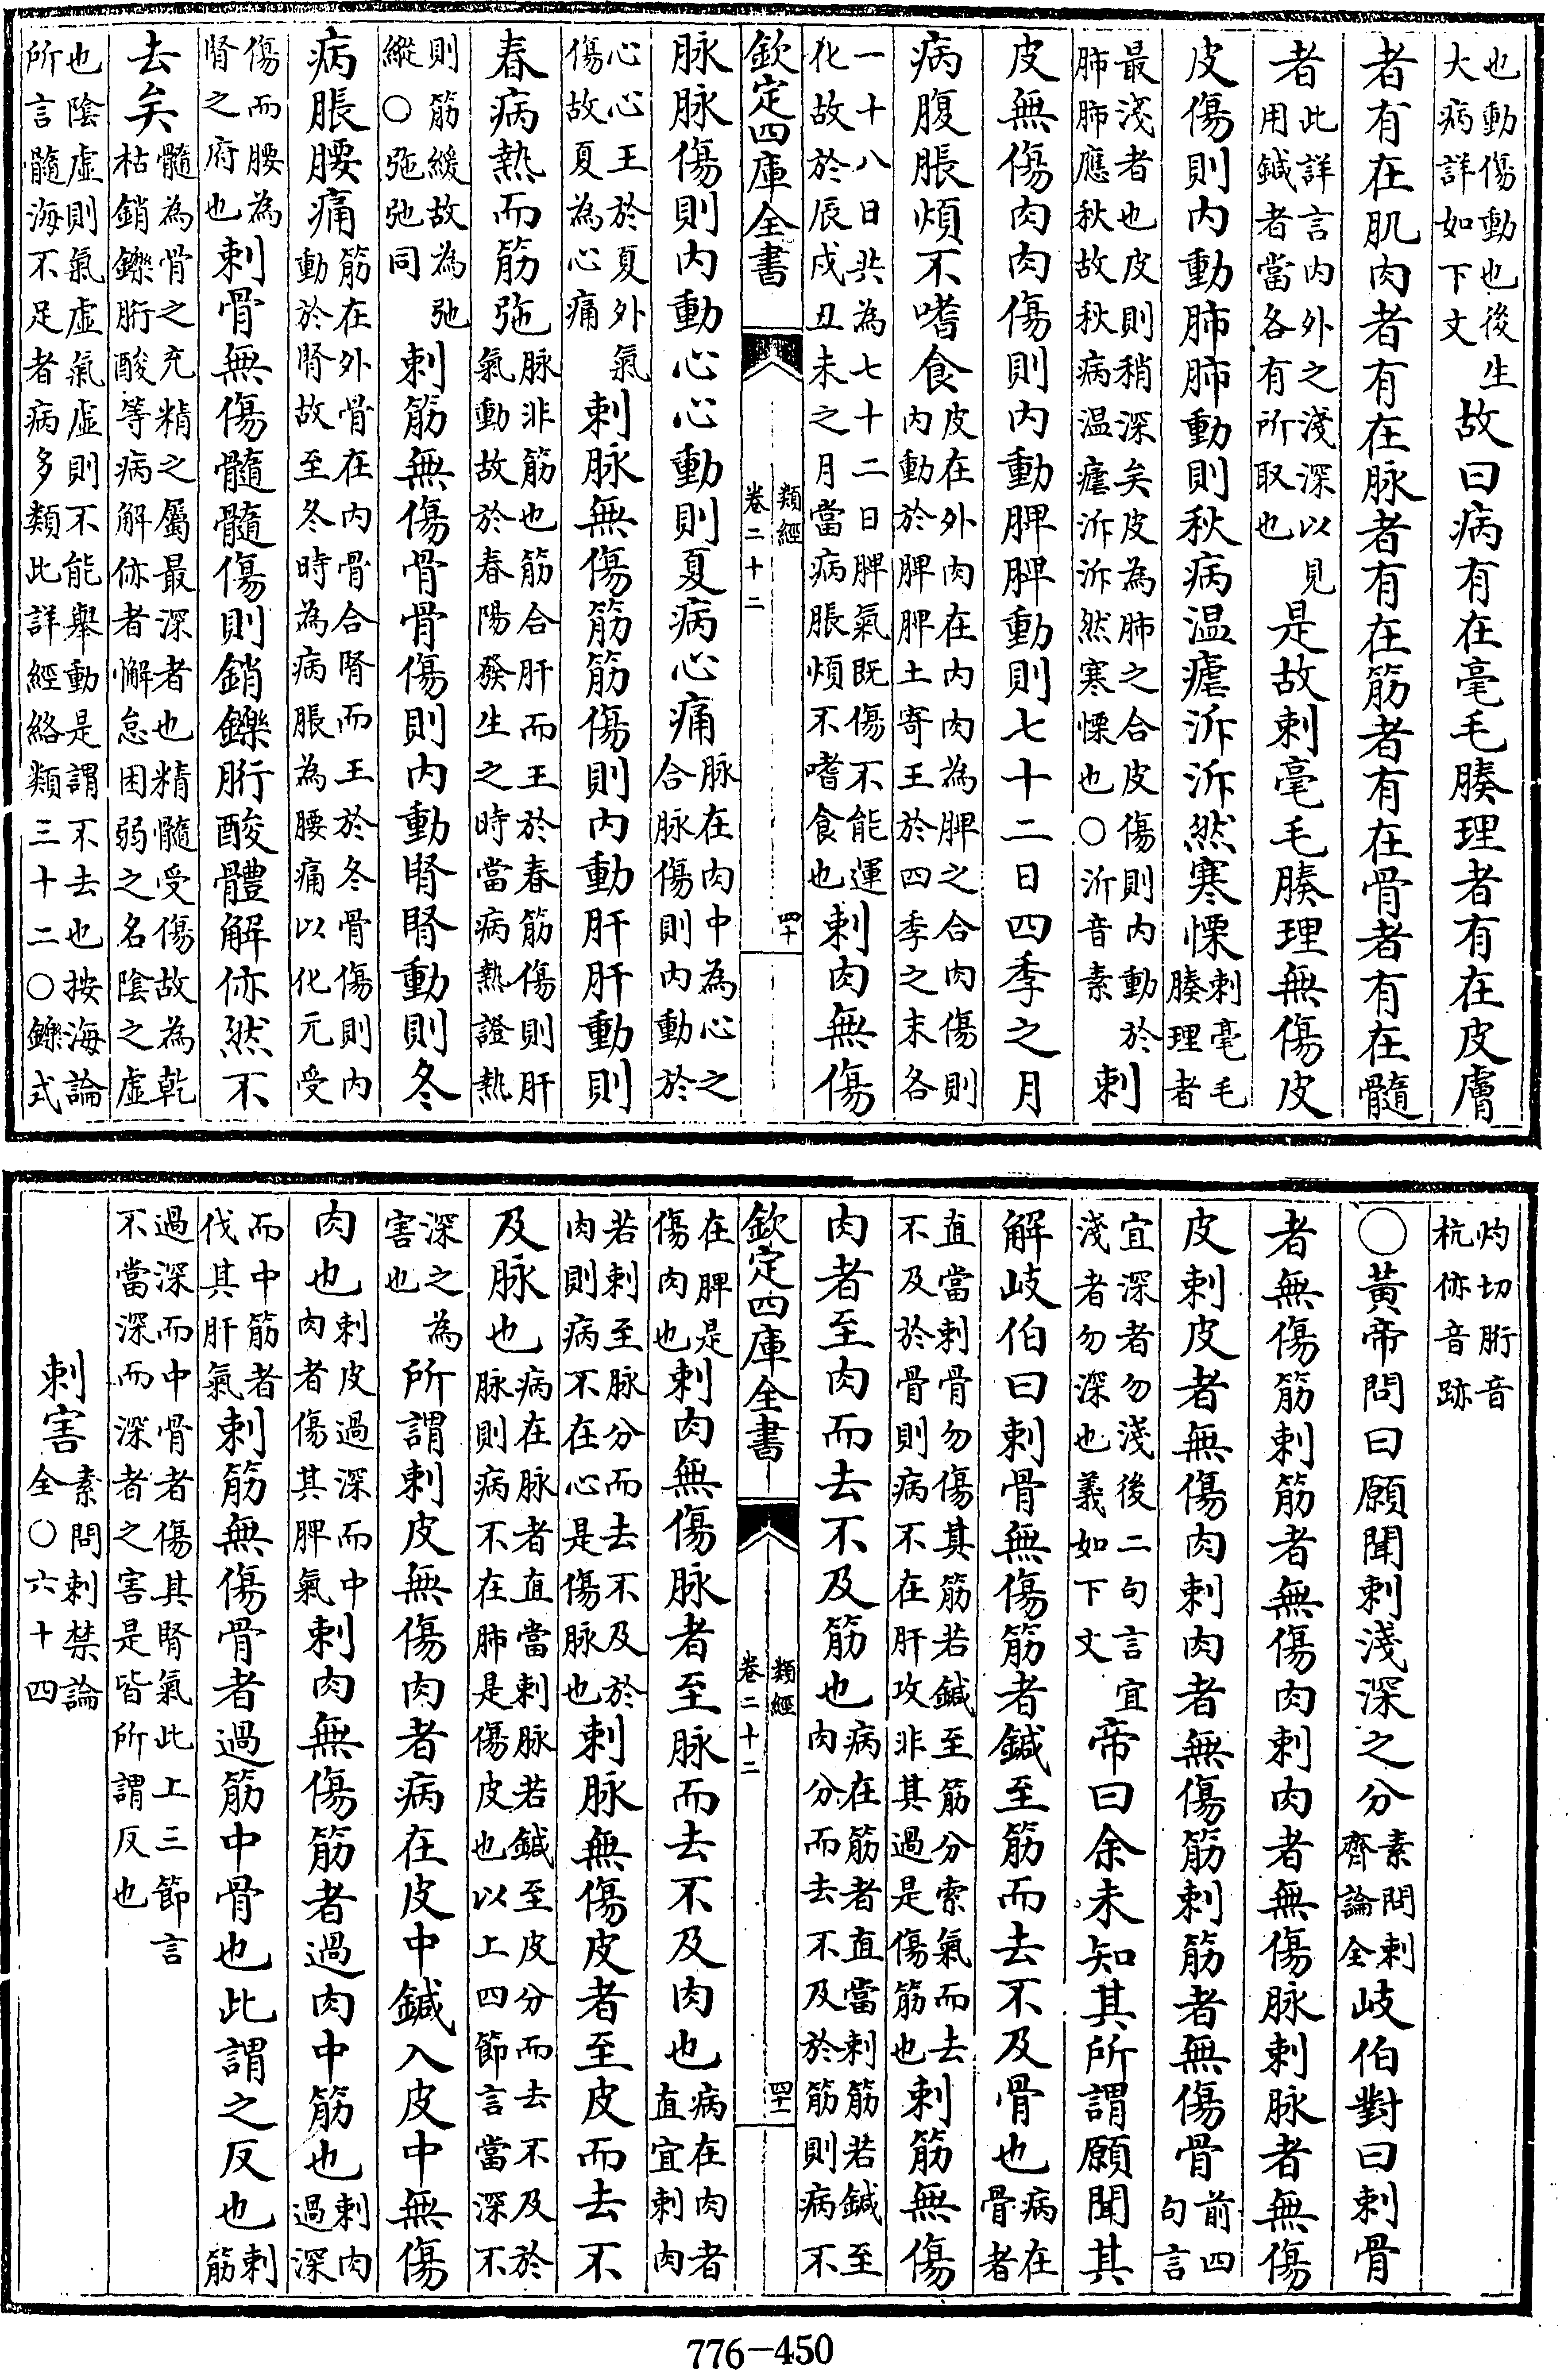 也動傷動也後生大病詳如下文故曰病有在毫毛腠理者有在皮膚
者有在肌肉者有在脉者有在筋者有在骨者有在髓
者此詳言内外之淺深以見用鍼者當各有所取也是故刺毫毛腠理無傷皮
皮傷則内動肺肺動則秋病温瘧泝泝然寒慄刺毫毛腠理者
最淺者也皮則稍深矣皮為肺之合皮傷則内動於肺肺應秋故秋病温瘧泝泝然寒慄也○泝音素刺
皮無傷肉肉傷則内動脾脾動則七十二日四季之月
病腹脹煩不嗜食皮在外肉在内肉為脾之合肉傷則内動於脾脾土寄王於四季之末各
一十八日共為七十二日脾氣既傷不能運化故於辰戌丑未之月當病脹煩不嗜食也刺肉無傷
欽定四庫全書 類經 卷二十二 四十
脉脉傷則内動心心動則夏病心痛脉在肉中為心之合脉傷則内動於
心心王於夏外氣傷故夏為心痛刺脉無傷筋筋傷則内動肝肝動則
春病熱而筋㢮脉非筋也筋合肝而王於春筋傷則肝氣動故於春陽發生之時當病熱證熱
則筋緩故為弛縱○㢮弛同刺筋無傷骨骨傷則内動腎腎動則冬
病脹腰痛筋在外骨在内骨合腎而王於冬骨傷則内動於腎故至冬時為病脹為腰痛以化元受
傷而腰為腎之府也刺骨無傷髓髓傷則銷鑠胻酸體解㑊然不
去矣髓為骨之充精之屬最深者也精髓受傷故為乾枯銷鑠胻酸等病解㑊者懈怠困弱之名陰之虛
也陰虛則氣虛氣虛則不能舉動是謂不去也按海論所言髓海不足者病多類此詳經絡類三十二○鑠式
灼切胻音杭㑊音跡
○黃帝問曰願聞刺淺深之分素問刺齊論全岐伯對曰刺骨
者無傷筋刺筋者無傷肉刺肉者無傷脉刺脉者無傷
皮刺皮者無傷肉刺肉者無傷筋刺筋者無傷骨前四句言
宜深者勿淺後二句言宜淺者勿深也義如下文帝曰余未知其所謂願聞其
解岐伯曰刺骨無傷筋者鍼至筋而去不及骨也病在骨者
直當刺骨勿傷其筋若鍼至筋分索氣而去不及於骨則病不在肝攻非其過是傷筋也刺筋無傷
肉者至肉而去不及筋也病在筋者直當刺筋若鍼至肉分而去不及於筋則病不
欽定四庫全書 類經 卷二十二 四十一
在脾是傷肉也刺肉無傷脉者至脉而去不及肉也病在肉者直宜刺肉
若刺至脉分而去不及於肉則病不在心是傷脉也刺脉無傷皮者至皮而去不
及脉也病在脉者直當刺脉若鍼至皮分而去不及於脉則病不在肺是傷皮也以上四節言當深不
深之為害也所謂刺皮無傷肉者病在皮中鍼入皮中無傷
肉也刺皮過深而中肉者傷其脾氣刺肉無傷筋者過肉中筋也刺肉過深
而中筋者伐其肝氣刺筋無傷骨者過筋中骨也此謂之反也刺筋
過深而中骨者傷其腎氣此上三節言不當深而深者之害是皆所謂反也
刺害素問刺禁論全○六十四
776-450